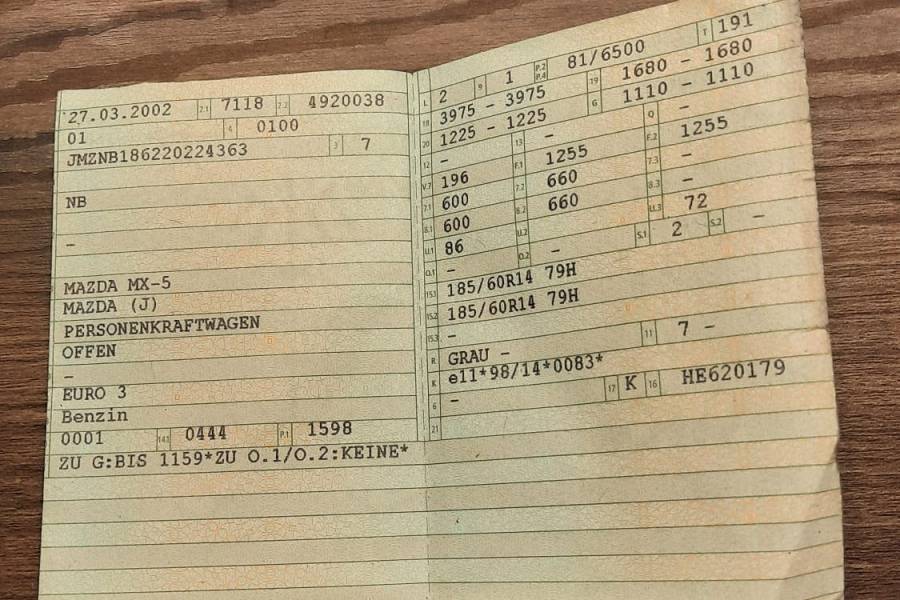 27.03.2002 2.1 7118 2.2 4920038
01 4 0100
JMZNB186220224363 3 7
NB
–
MAZDA MX-5
MAZDA (J)
PERSONENKRAFTWAGEN
OFFEN
–
EURO 3
Benzin
0001 14.1 0444 P.1 1598
ZU G:BIS 1159*ZU O.1/O.2:KEINE*
L 2 9 1 P.2 P.4 81/6500 T 191
18 3975 – 3975 19 1680 – 1680
20 1225 – 1225 G 1110 – 1110
12 – 13 – Q –
V.7 196 F.1 1255 F.2 1255
7.1 600 7.2 660 7.3 –
8.1 600 8.2 660 8.3 –
U.1 86 U.2 – U.3 72
O.1 – O.2 – S.1 2 S.2 –
15.1 185/60R14 79H
15.2 185/60R14 79H
15.3 –
R GRAU – 11 7 –
K e11*98/14*0083*
6 – 17 K 16 HE620179
21